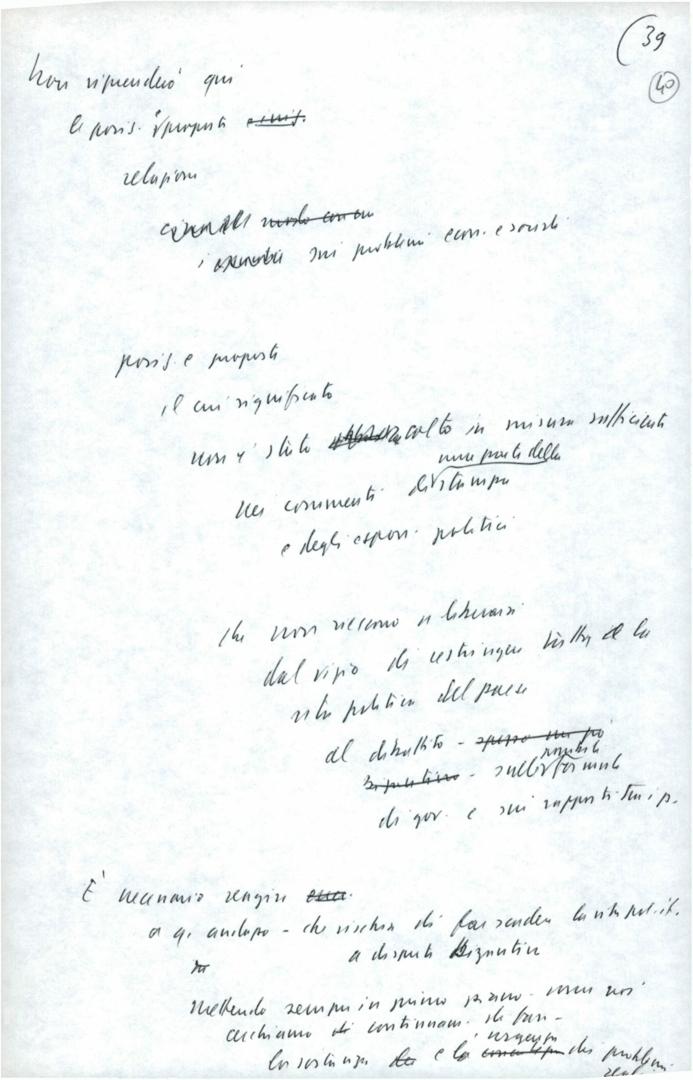 (39
40
Non riprenderò qui
le posis. e proposte
relazioni
sui problemi econ. e sociali
posis. e proposte
il cui significato
non è stato colto in misura sufficiente
una parte della
nei commenti di stampa
e degli espon. politici
che non riescono a liberarsi
dal vizio di restringere tutta la
vita politica del paese
al dibattito -
possibili
- sulle formule
di gov. e sui rapporti tra i p.
È necessario reagire
a q. andazzo - che rischia di far scadere la vita polit.
a dispute bizantine
mettendo sempre in primo piano - come noi
cerchiamo di continuam. di fare -
urgenza
la sostanza e la dei problemi
reali